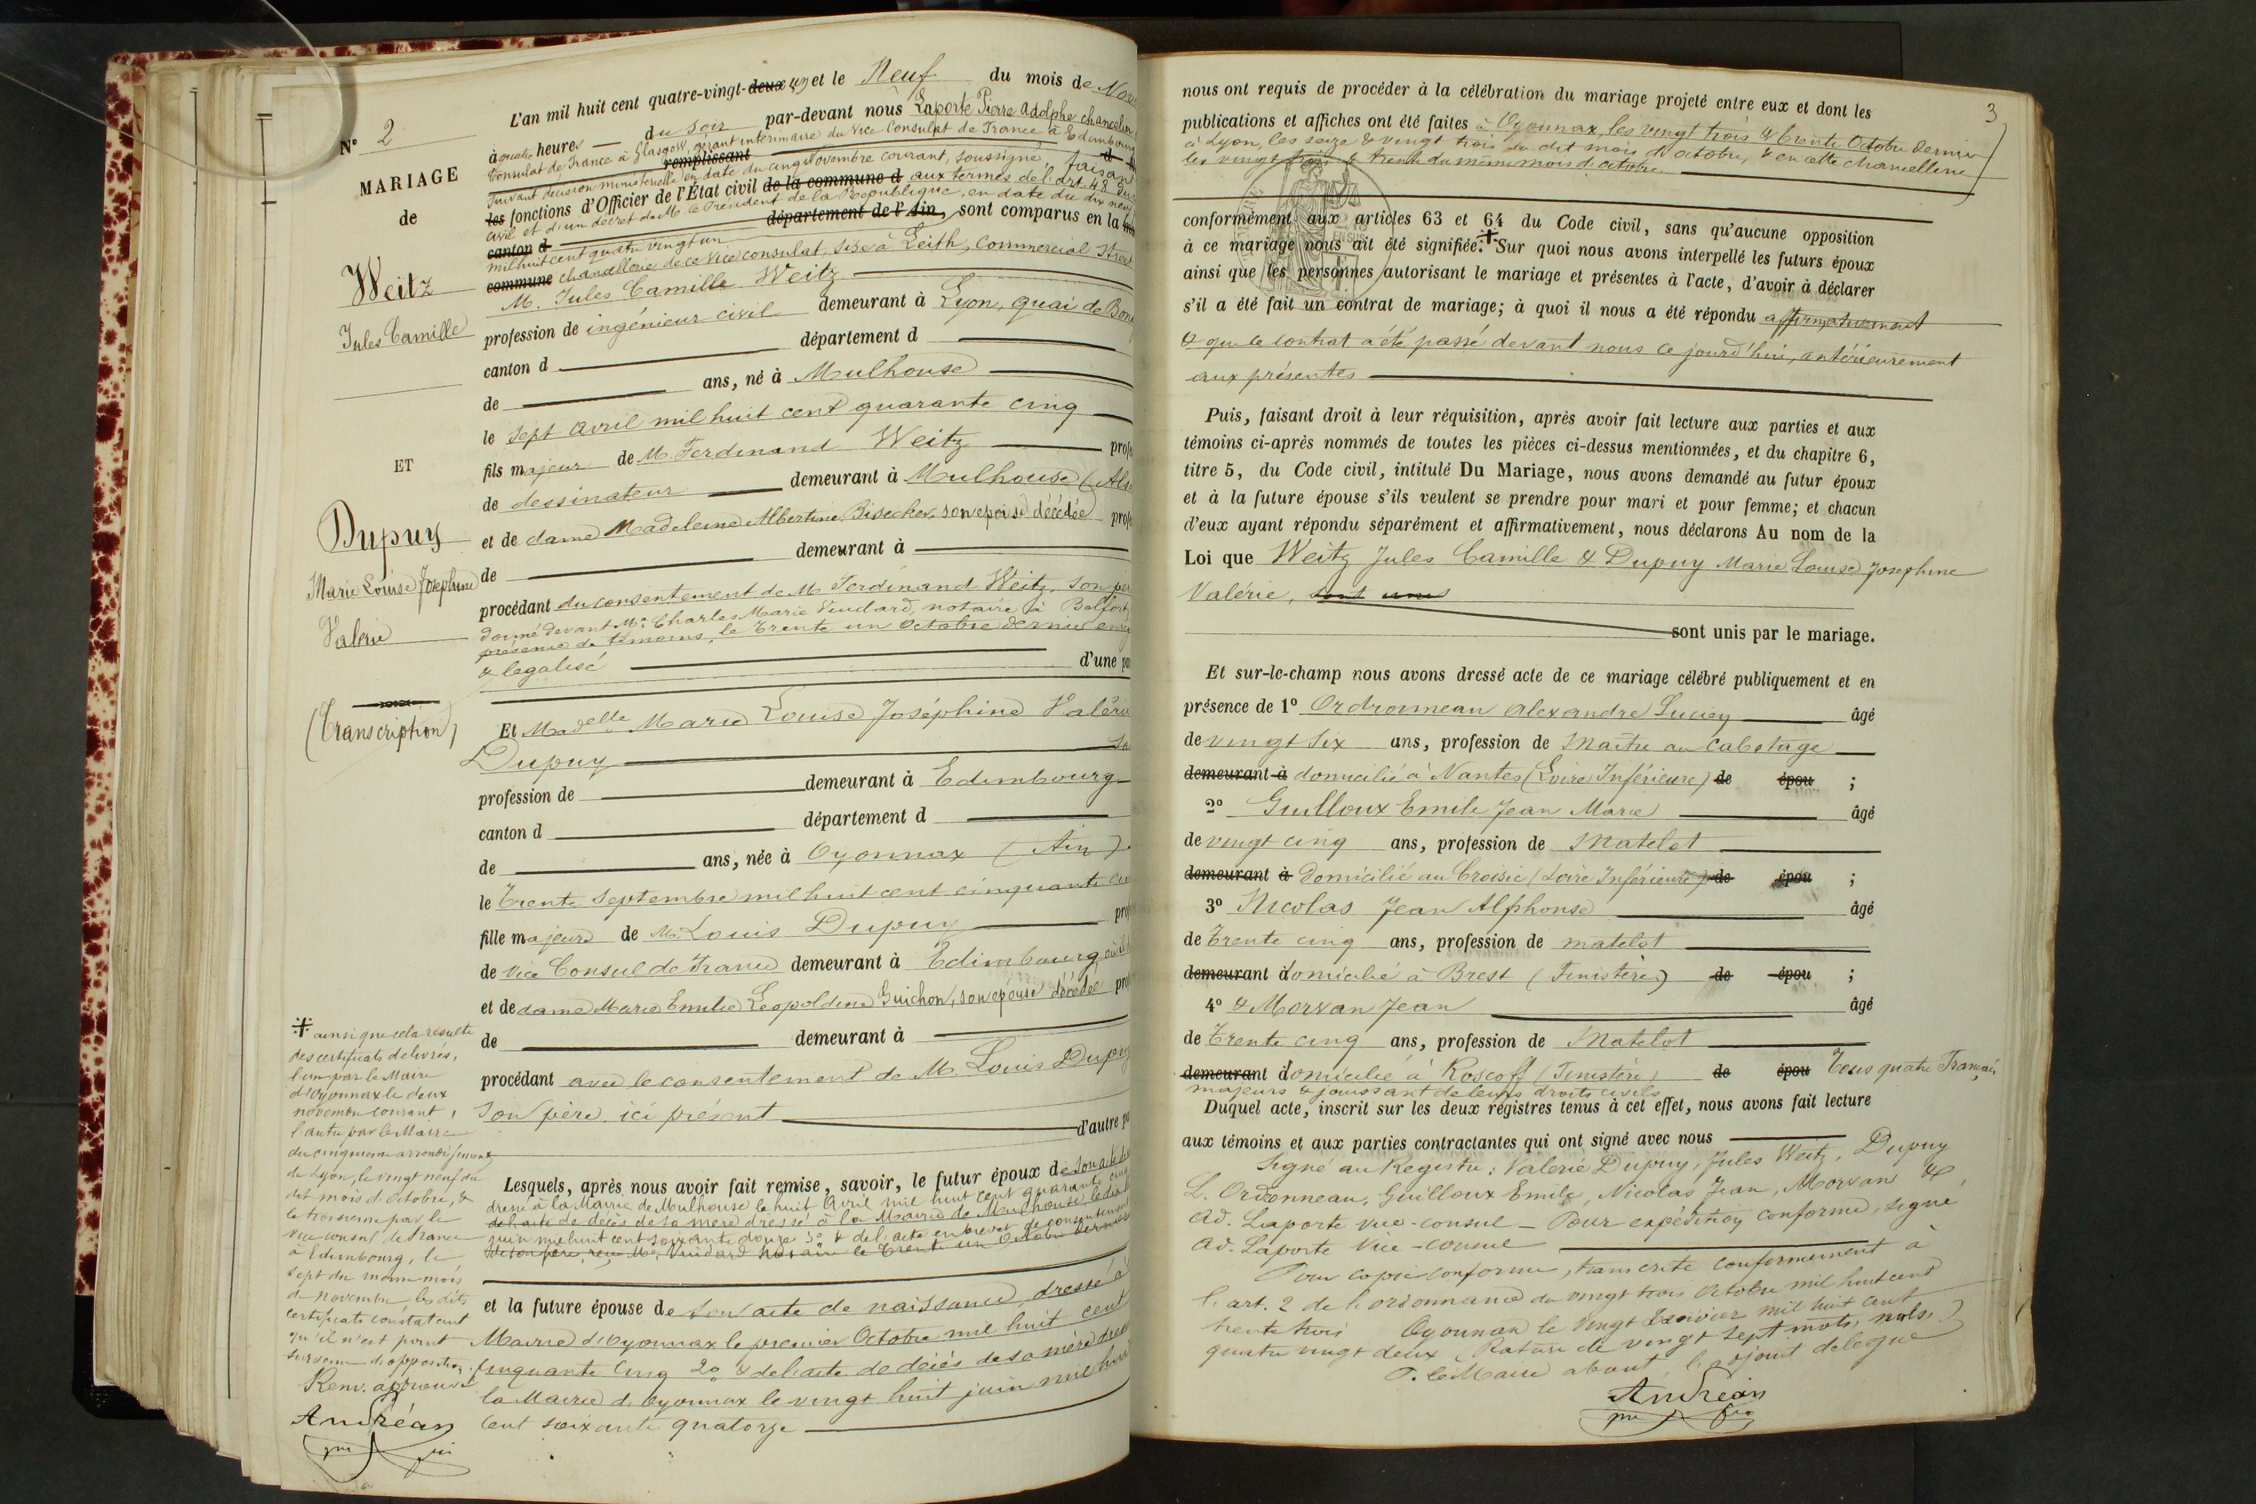 N° 2
MARIAGE
de
Weitz
Jules Camille
ET
Dupuy
Marie Louise Joséphine
Valérie
(Transcription)
L'an mil huit cent quatre-vingt-deux un et le Neuf du mois de Nov
à quatre heures du soir par-devant nous Laporte Pierre Adolphe chancelier
Consulat de France à Glasgow, gérant intérimaire du Vice Consulat de France à Edimbourg
remplissant
suivant décision ministérielle en date du cinq Novembre courant, soussigné, faisan
les fonctions d'Officier de l'État civil de la commune d aux termes de l'art. 48 du
civil et d'un décret de M. le Président de la République, en date du dix neuf
canton d département de l'Ain, sont comparus en la
mil huit cent quatre vingt un
commune chancellerie de ce Vice consulat, sise à Leith, Commercial Street
M. Jules Camille Weitz
profession de ingénieur civil demeurant à Lyon, quai de Bon
canton d département d
de ans, né à Mulhouse
le sept avril mil huit cent quarante cinq
fils majeur de M. Ferdinand Weitz profe
de dessinateur demeurant à Mulhouse (Als
et de dame Madeleine Albertine Bisecher, son épouse décédée profe
de demeurant à
procédant du consentement de M. Ferdinand Weitz, son pè
donné devant Me Charles Marie Vuidard, notaire à Belfort,
présence de témoins, le trente un Octobre dernier enreg
& légalisé d'une pa
Et Madelle Marie Louise Joséphine Valérie
Dupuy sa
profession de demeurant à Edimbourg
canton d département d
de ans, née à Oyonnax (Ain)
le trente Septembre mil huit cent cinquante cin
fille majeure de M. Louis Dupuy prof
de Vice Consul de France demeurant à Edimbourg
et de dame Marie Emilie Léopoldine Guichon, son épouse décédée pro
de demeurant à
procédant avec le consentement de M. Louis Dupuy
son père, ici présent d'autre pa
Lesquels, après nous avoir fait remise, savoir, le futur époux de son acte de
dressé à la Mairie de Mulhouse le huit Avril mil huit cent quarante cinq
de l'acte de décès de sa mère dressé à la Mairie de Mulhouse le dix
juin mil huit cent soixante douze 3° & de l'acte en brevet de consentement
de son père, reçu Me Vuidard notaire le trente un Octobre dernier
et la future épouse de son acte de naissance, dressé à
Mairie d'Oyonnax le premier Octobre mil huit cent
cinquante cinq 2° & de l'acte de décès de sa mère dress
la Mairie d'Oyonnax le vingt huit juin mil hui
cent soixante quatorze
+ ainsi que cela résulte
des certificats délivrés,
l'un par le Maire
d'Oyonnax le deux
novembre courant,
l'autre par le Maire
du cinquième arrondissement
de Lyon, le vingt neuf du
dit mois d'Octobre, &
le troisième par le
vice consul de France
à Edimbourg, le
sept du même mois
de novembre, les dits
certificats constatant
qu'il n'est point
survenu d'opposition.
Renv. approuvé
Andréan
3
nous ont requis de procéder à la célébration du mariage projeté entre eux et dont les
publications et affiches ont été faites à Oyonnax, les vingt trois & trente Octobre dernier
à Lyon, les seize & vingt trois du dit mois d'octobre, & en cette chancellerie
les vingt trois & trente du même mois d'octobre
conformément aux articles 63 et 64 du Code civil, sans qu'aucune opposition
à ce mariage nous ait été signifiée. + Sur quoi nous avons interpellé les futurs époux
ainsi que les personnes autorisant le mariage et présentes à l'acte, d'avoir à déclarer
s'il a été fait un contrat de mariage; à quoi il nous a été répondu affirmativement
& que ce contrat a été passé devant nous ce jourd'hui, antérieurement
aux présentes
Puis, faisant droit à leur réquisition, après avoir fait lecture aux parties et aux
témoins ci-après nommés de toutes les pièces ci-dessus mentionnées, et du chapitre 6,
titre 5, du Code civil, intitulé Du Mariage, nous avons demandé au futur époux
et à la future épouse s'ils veulent se prendre pour mari et pour femme; et chacun
d'eux ayant répondu séparément et affirmativement, nous déclarons Au nom de la
Loi que Weitz Jules Camille & Dupuy Marie Louise Joséphine
Valérie, sont unis
sont unis par le mariage.
Et sur-le-champ nous avons dressé acte de ce mariage célébré publiquement et en
présence de 1° Ordronneau Alexandre Lucien âgé
de vingt six ans, profession de Maître au cabotage
demeurant à domicilié à Nantes (Loire Inférieure) de épou ;
2° Guilloux Emile Jean Marie âgé
de vingt cinq ans, profession de Matelot
demeurant à domicilié au Croisic (Loire Inférieure) de épou ;
3° Nicolas Jean Alphonse âgé
de trente cinq ans, profession de matelot
demeurant domicilié à Brest (Finistère) de épou ;
4° & Morvan Jean âgé
de trente cinq ans, profession de Matelot
demeurant domicilié à Roscoff (Finistère) de épou Tous quatre Français
majeurs & jouissant de leurs droits civils
Duquel acte, inscrit sur les deux registres tenus à cet effet, nous avons fait lecture
aux témoins et aux parties contractantes qui ont signé avec nous
Signé au Registre: Valérie Dupuy, Jules Weitz, Dupuy
L. Ordronneau, Guilloux Emile, Nicolas Jean, Morvan &
Ad. Laporte vice-consul — Pour expédition conforme, signé
Ad. Laporte Vice-consul
Pour copie conforme, transcrite conformément à
l'art. 2 de l'ordonnance du vingt trois Octobre mil huit cent
trente trois Oyonnax le vingt Janvier mil huit cent
quatre vingt deux. Rature de vingt sept mots, nuls.
P. le Maire absent, l'adjoint délégué
Andréan